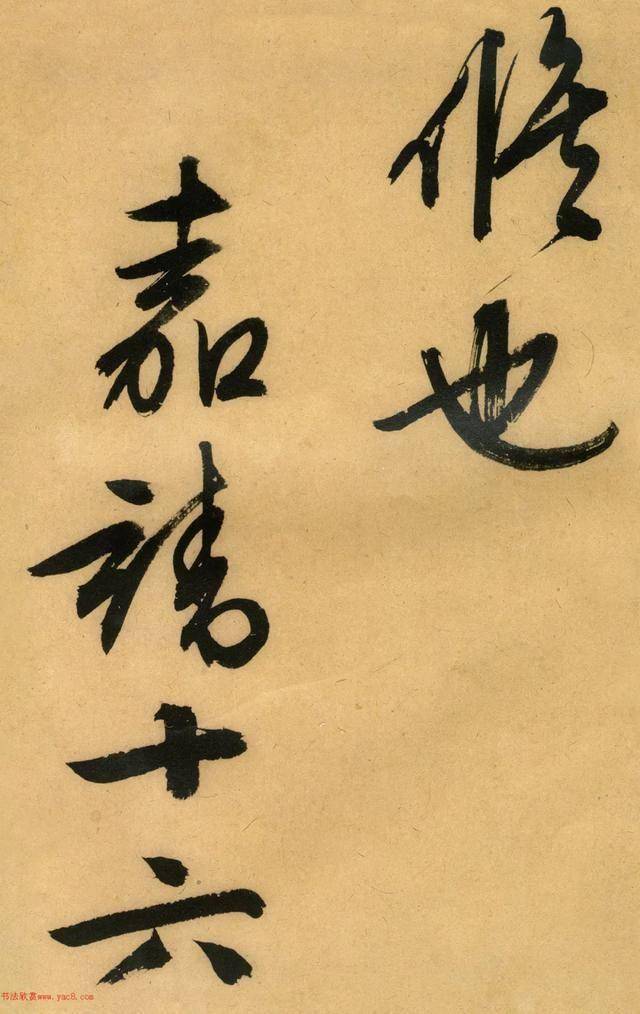 候也
嘉靖十六
书法欣赏www.yac8.com